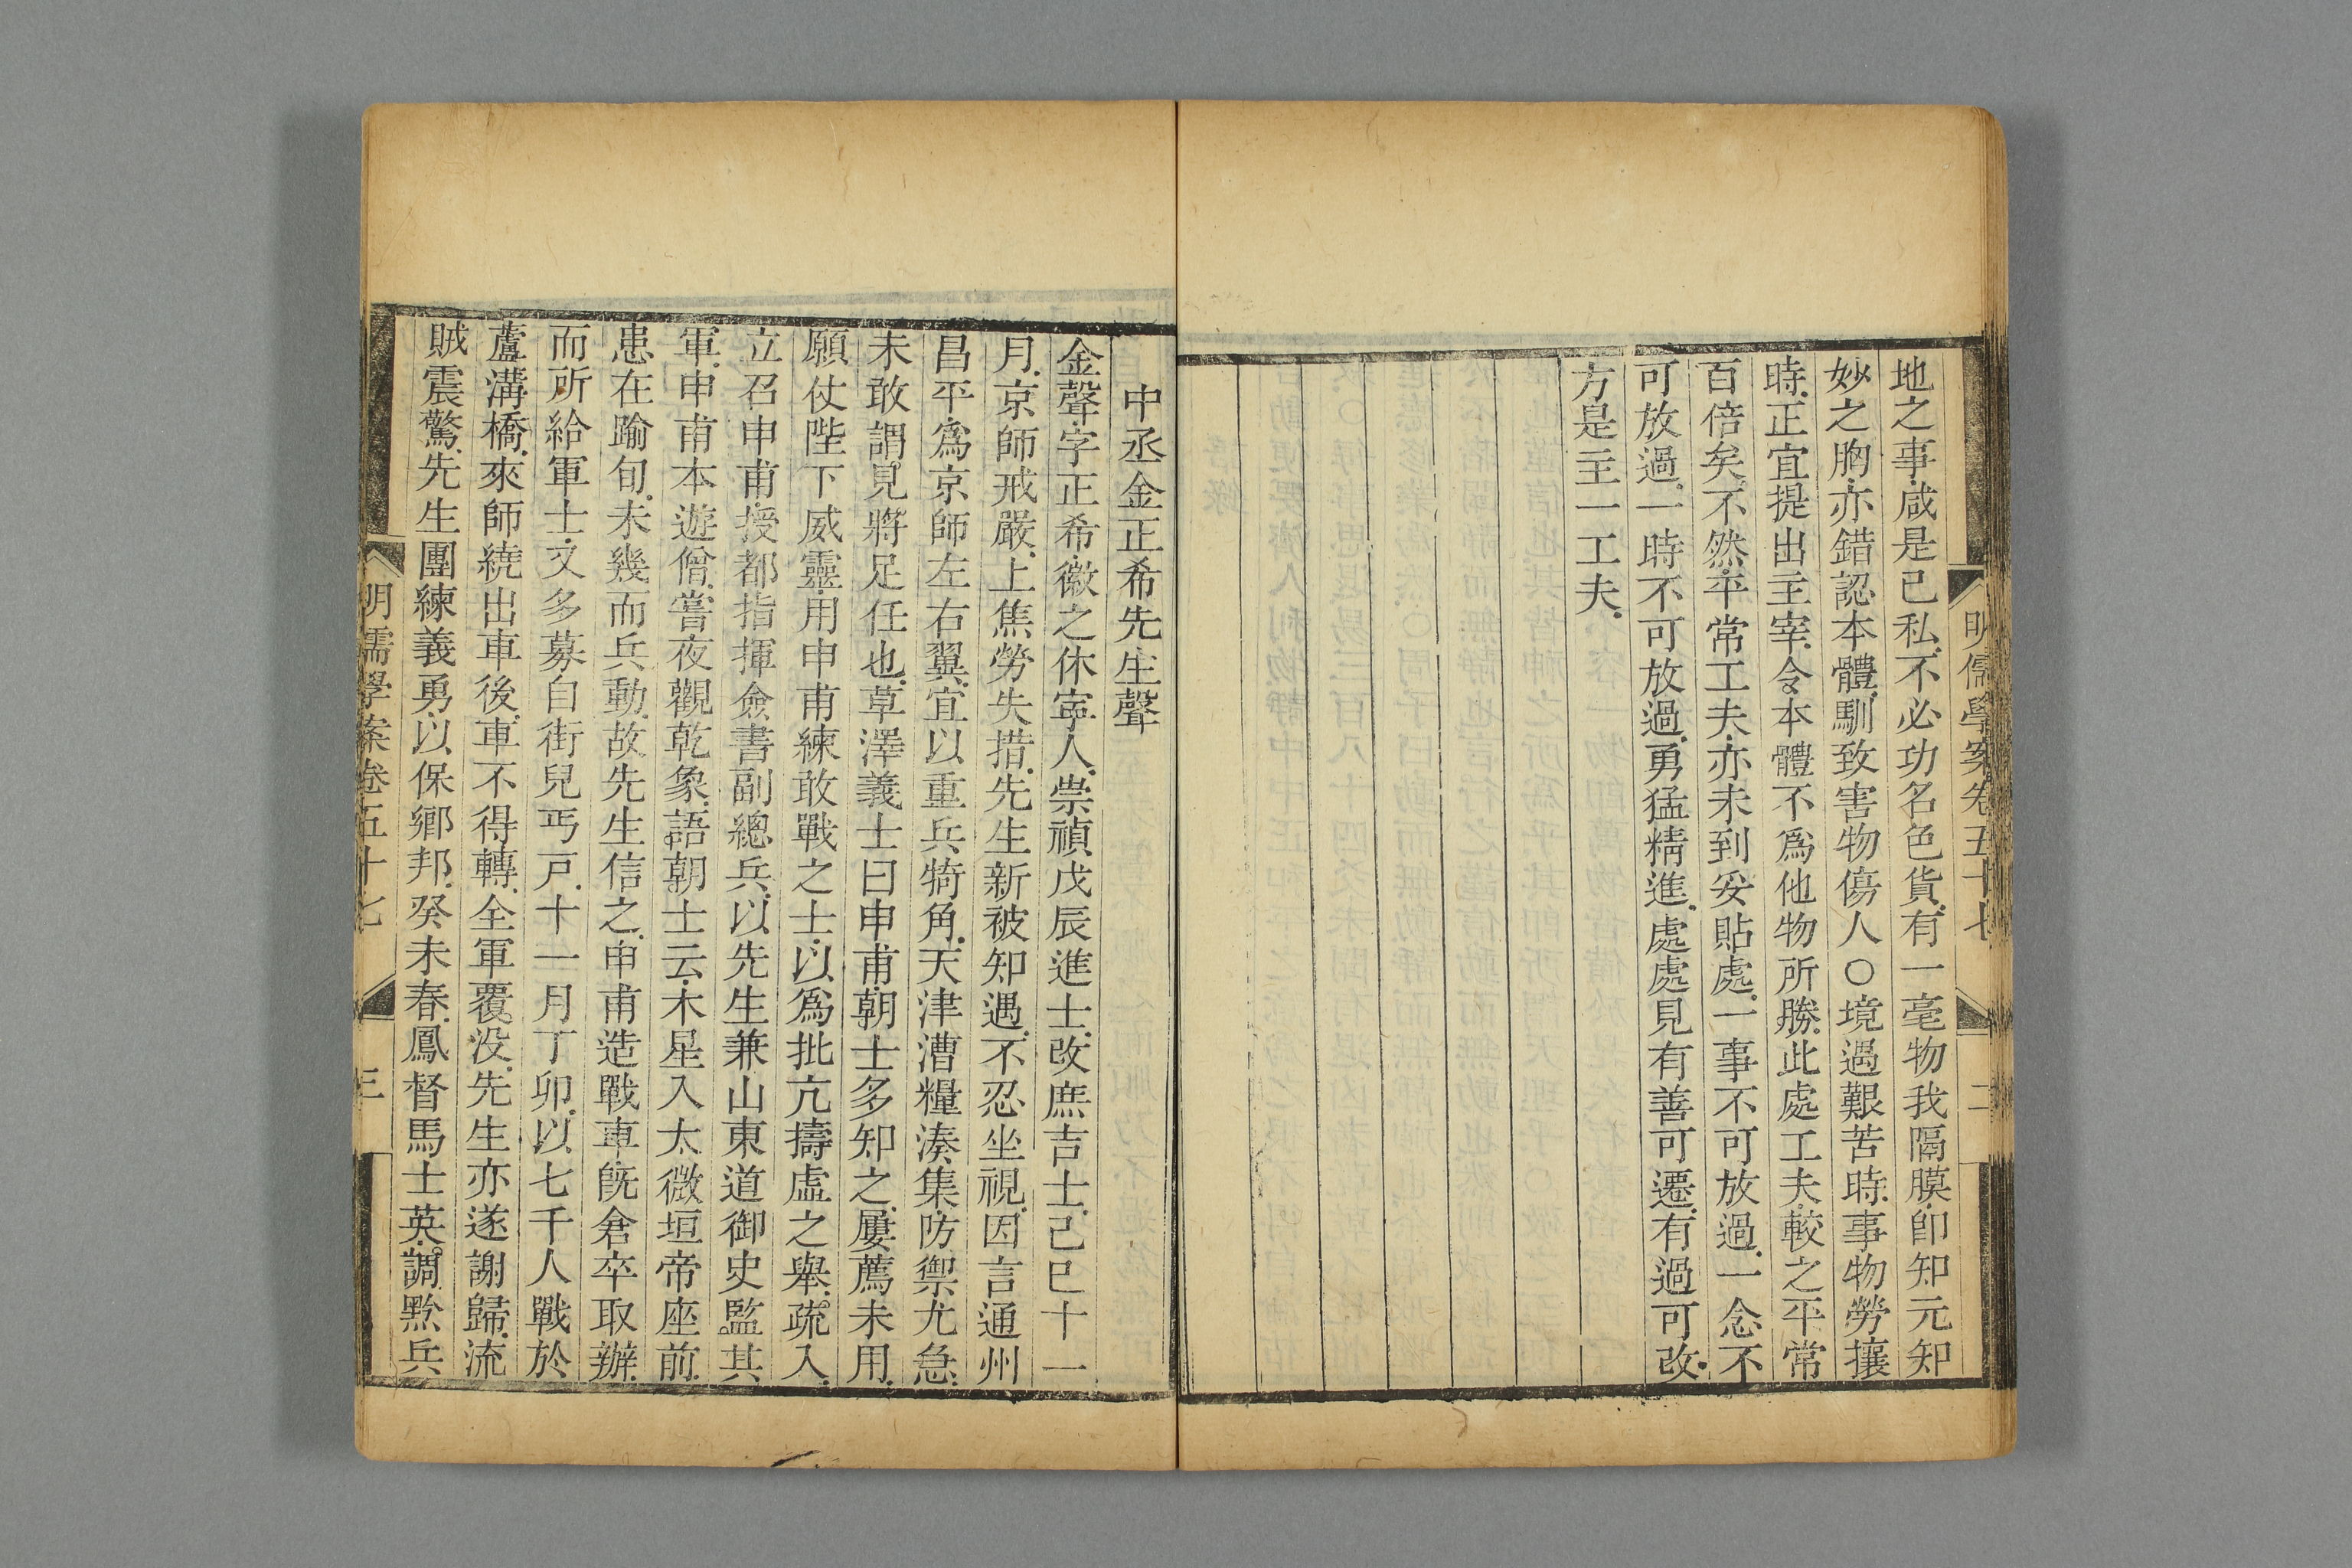 明儒學案卷五十七
二
地之事.咸是已私.不必功名色貨.有一毫物我隔膜.卽知元知
妙之胸.亦錯認本體.馴致害物傷人○境遇艱苦時.事物勞攘
時.正宜提出主宰.令本體不爲他物所勝.此處工夫.較之平常
百倍矣.不然.平常工夫.亦未到妥貼處.一事不可放過.一念不
可放過.一時不可放過.勇猛精進.處處見有善可遷.有過可改.
方是主一工夫.
中丞金正希先生聲
金聲.字正希.徽之休寧人.崇禎戊辰進士.改庶吉士.己巳十一
月.京師戒嚴.上焦勞失措.先生新被知遇.不忍坐視.因言通州
昌平.爲京師左右翼.宜以重兵犄角.天津漕糧湊集.防禦尤急.
未敢謂見將足任也.草澤義士曰申甫.朝士多知之.屢薦未用.
願仗陛下威靈.用申甫練敢戰之士.以爲批亢擣虛之舉.疏入.
立召申甫.授都指揮僉書副總兵.以先生兼山東道御史監其
軍.申甫本遊僧.嘗夜觀乾象.語朝士云.木星入太微垣帝座前.
患在踰旬.未幾而兵動.故先生信之.申甫造戰車.旣倉卒取辦.
而所給軍士.又多募自街兒丐戶.十一月丁卯.以七千人戰於
蘆溝橋.來師繞出車後.車不得轉.全軍覆没.先生亦遂謝歸.流
賊震驚.先生團練義勇.以保鄉邦.癸未春.鳳督馬士英.調黔兵
明儒學案卷五十七
三